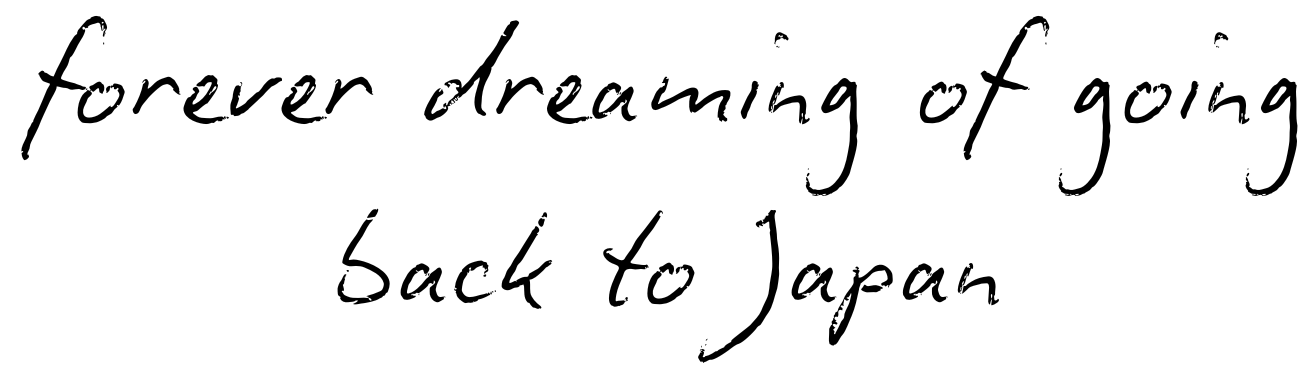 forever dreaming of going
back to Japan